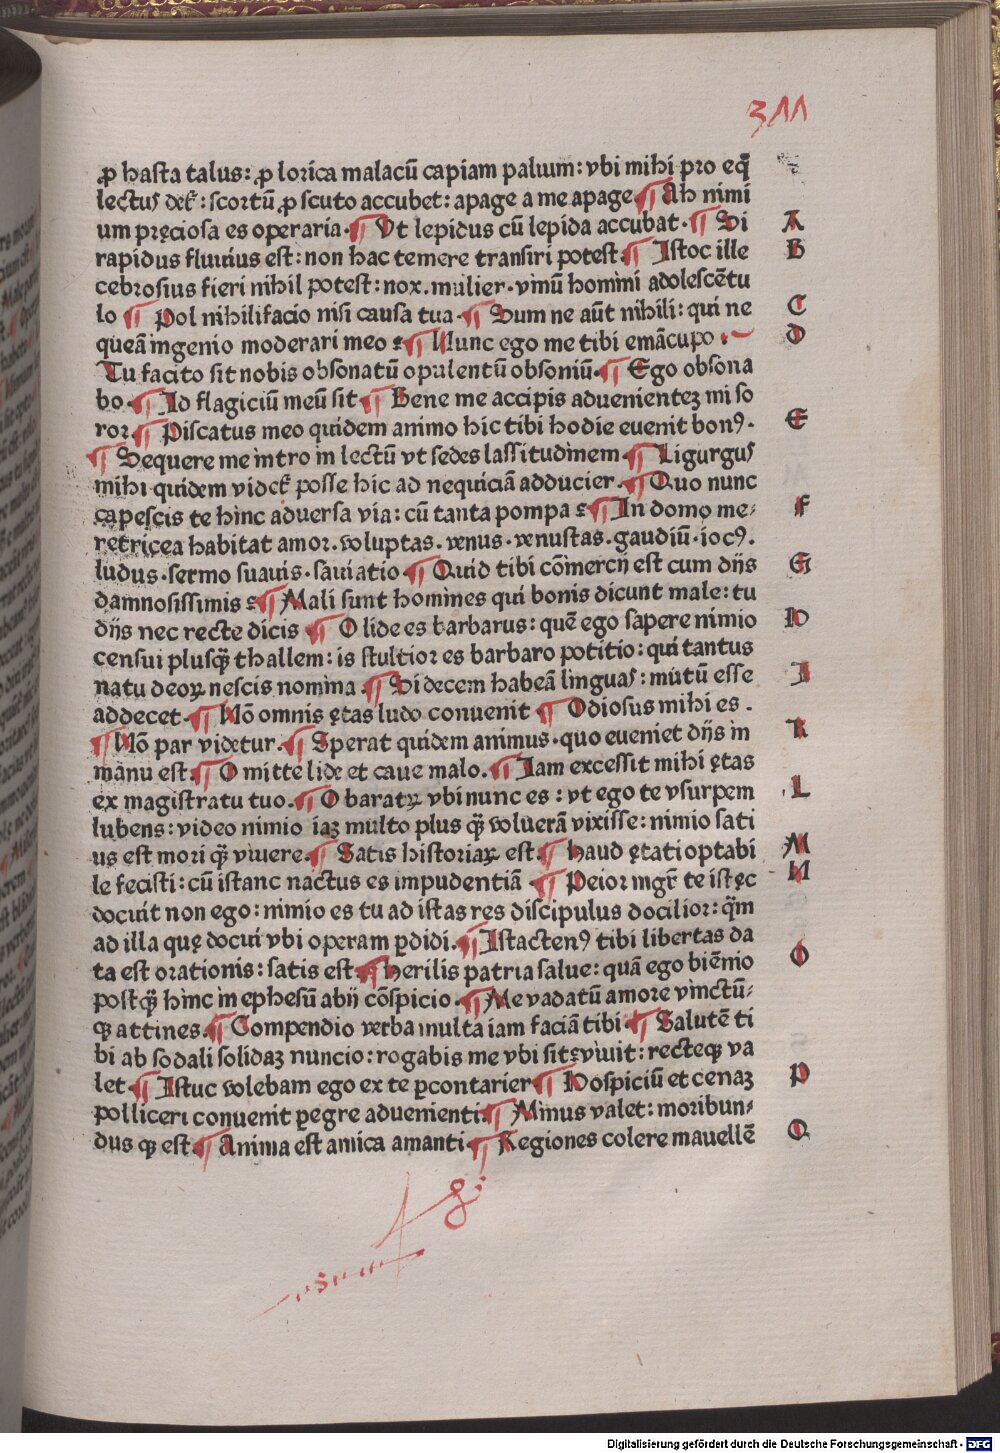 311
ꝓ hasta talus: ꝓ lorica malacū capiam palium: vbi mihi pro eq̄
lectus det᷑: scortū ꝓ scuto accubet: apage a me apage ¶ Ah nimi
um pręciosa es operaria. ¶ Vt lepidus cū lepida accubat. ¶ Si A
rapidus fluuius est: non hac temere transiri potest ¶ Istoc ille B
cebrosius fieri nihil potest: nox. mulier. vinū homini adolescētu
lo ¶ Pol nihilifacio nisi causa tua. ¶ Sum ne aūt nihili: qui ne C
queā ingenio moderari meo ? ¶ Nunc ego me tibi emācupo. D
Tu facito sit nobis obsonatū opulentū obsoniū. ¶ Ego obsona
bo. ¶ Id flagiciū meū sit ¶ Bene me accipis aduenientez mi so
ror. ¶ Piscatus meo quidem animo hic tibi hodie euenit bonꝰ. E
¶ Sequere me intro in lectū vt sedes lassitudinem ¶ Ligurgus
mihi quidem videt᷑ posse hic ad nequiciā adducier. ¶ Quo nunc
capescis te hinc aduersa via: cū tanta pompa ? ¶ In domo me⸗ F
retricea habitat amor. voluptas. venus. venustas. gaudiū. iocꝰ.
ludus. sermo suauis. sauiatio ¶ Quid tibi cōmercij est cum dijs G
damnosissimis ? ¶ Mali sunt homines qui bonis dicunt male: tu
dijs nec recte dicis ¶ O lide es barbarus: quē ego sapere nimio H
censui plusq̄ thallem: is stultior es barbaro potitio: qui tantus
natu deoꝝ nescis nomina ¶ Si decem habeā linguas: mutū esse I
addecet ¶ Nō omnis ętas ludo conuenit ¶ Odiosus mihi es.
¶ Nō par videtur. ¶ Sperat quidem animus. quo eueniet dijs in K
manu est. ¶ O mitte lide et caue malo. ¶ Iam excessit mihi ętas
ex magistratu tuo. ¶ O baratꝝ vbi nunc es: vt ego te vsurpem L
lubens: video nimio iaz multo plus q̄ voluerā vixisse: nimio sati
us est mori q̄ viuere. ¶ Satis historiaꝝ est. ¶ Haud ętati optabi M
le fecisti: cū istanc nactus es impudentiā ¶ Peior mgr̄ te istęc N
docuit non ego: nimio es tu ad istas res discipulus docilior: q̄m
ad illa quę docui vbi operam ꝑdidi. ¶ Istactenꝰ tibi libertas da O
ta est orationis: satis est ¶ Herilis patria salue: quā ego biēnio
postq̄ hinc in ephesū abij cōspicio. ¶ Me vadatū amore vinctū⸗
qꝫ attines. ¶ Compendio verba multa iam faciā tibi ¶ Salutē ti
bi ab sodali solidaz nuncio: rogabis me vbi sit ? viuit: recteqꝫ va
let ¶ Istuc volebam ego ex te ꝑcontarier ¶ Hospiciū et cenaz P
polliceri conuenit ꝑegre aduenienti. ¶ Minus valet: moribun⸗
dus qꝫ est ¶ Anima est amica amanti ¶ Regiones colere mauellē Q
Digitalisierung gefördert durch die Deutsche Forschungsgemeinschaft - DFG